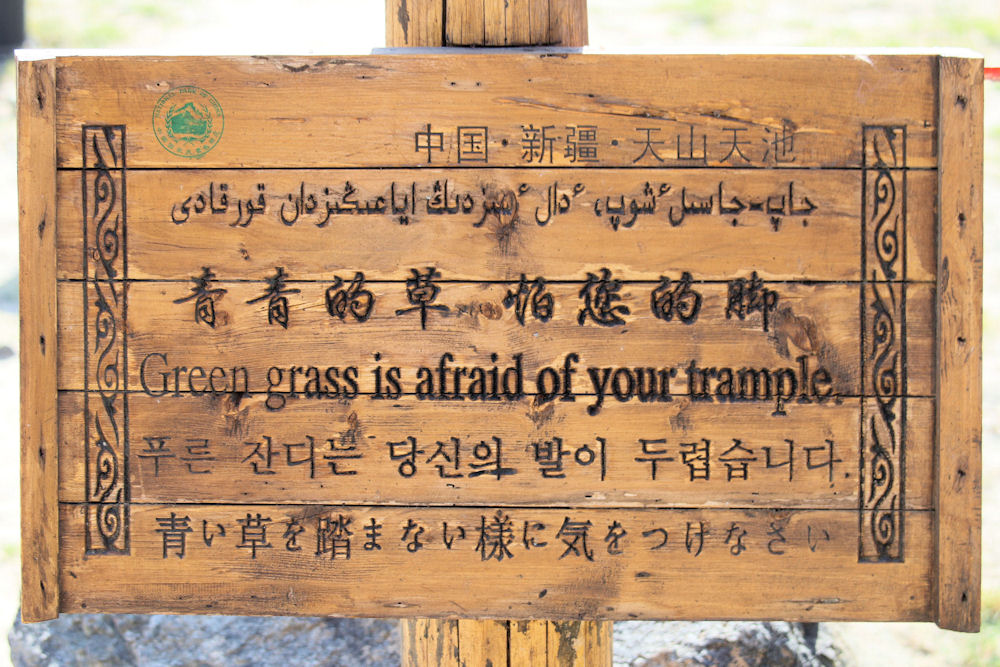 中国·新疆·天山天池
جاپ-جاسىل ٴشوپ، ٴدال ٴسىزدىڭ اياعىڭىزدان قورقادى
青青的草 怕您的脚
Green grass is afraid of your trample.
푸른 잔디는 당신의 발이 두렵습니다.
青い草を踏まない様に気をつけなさい